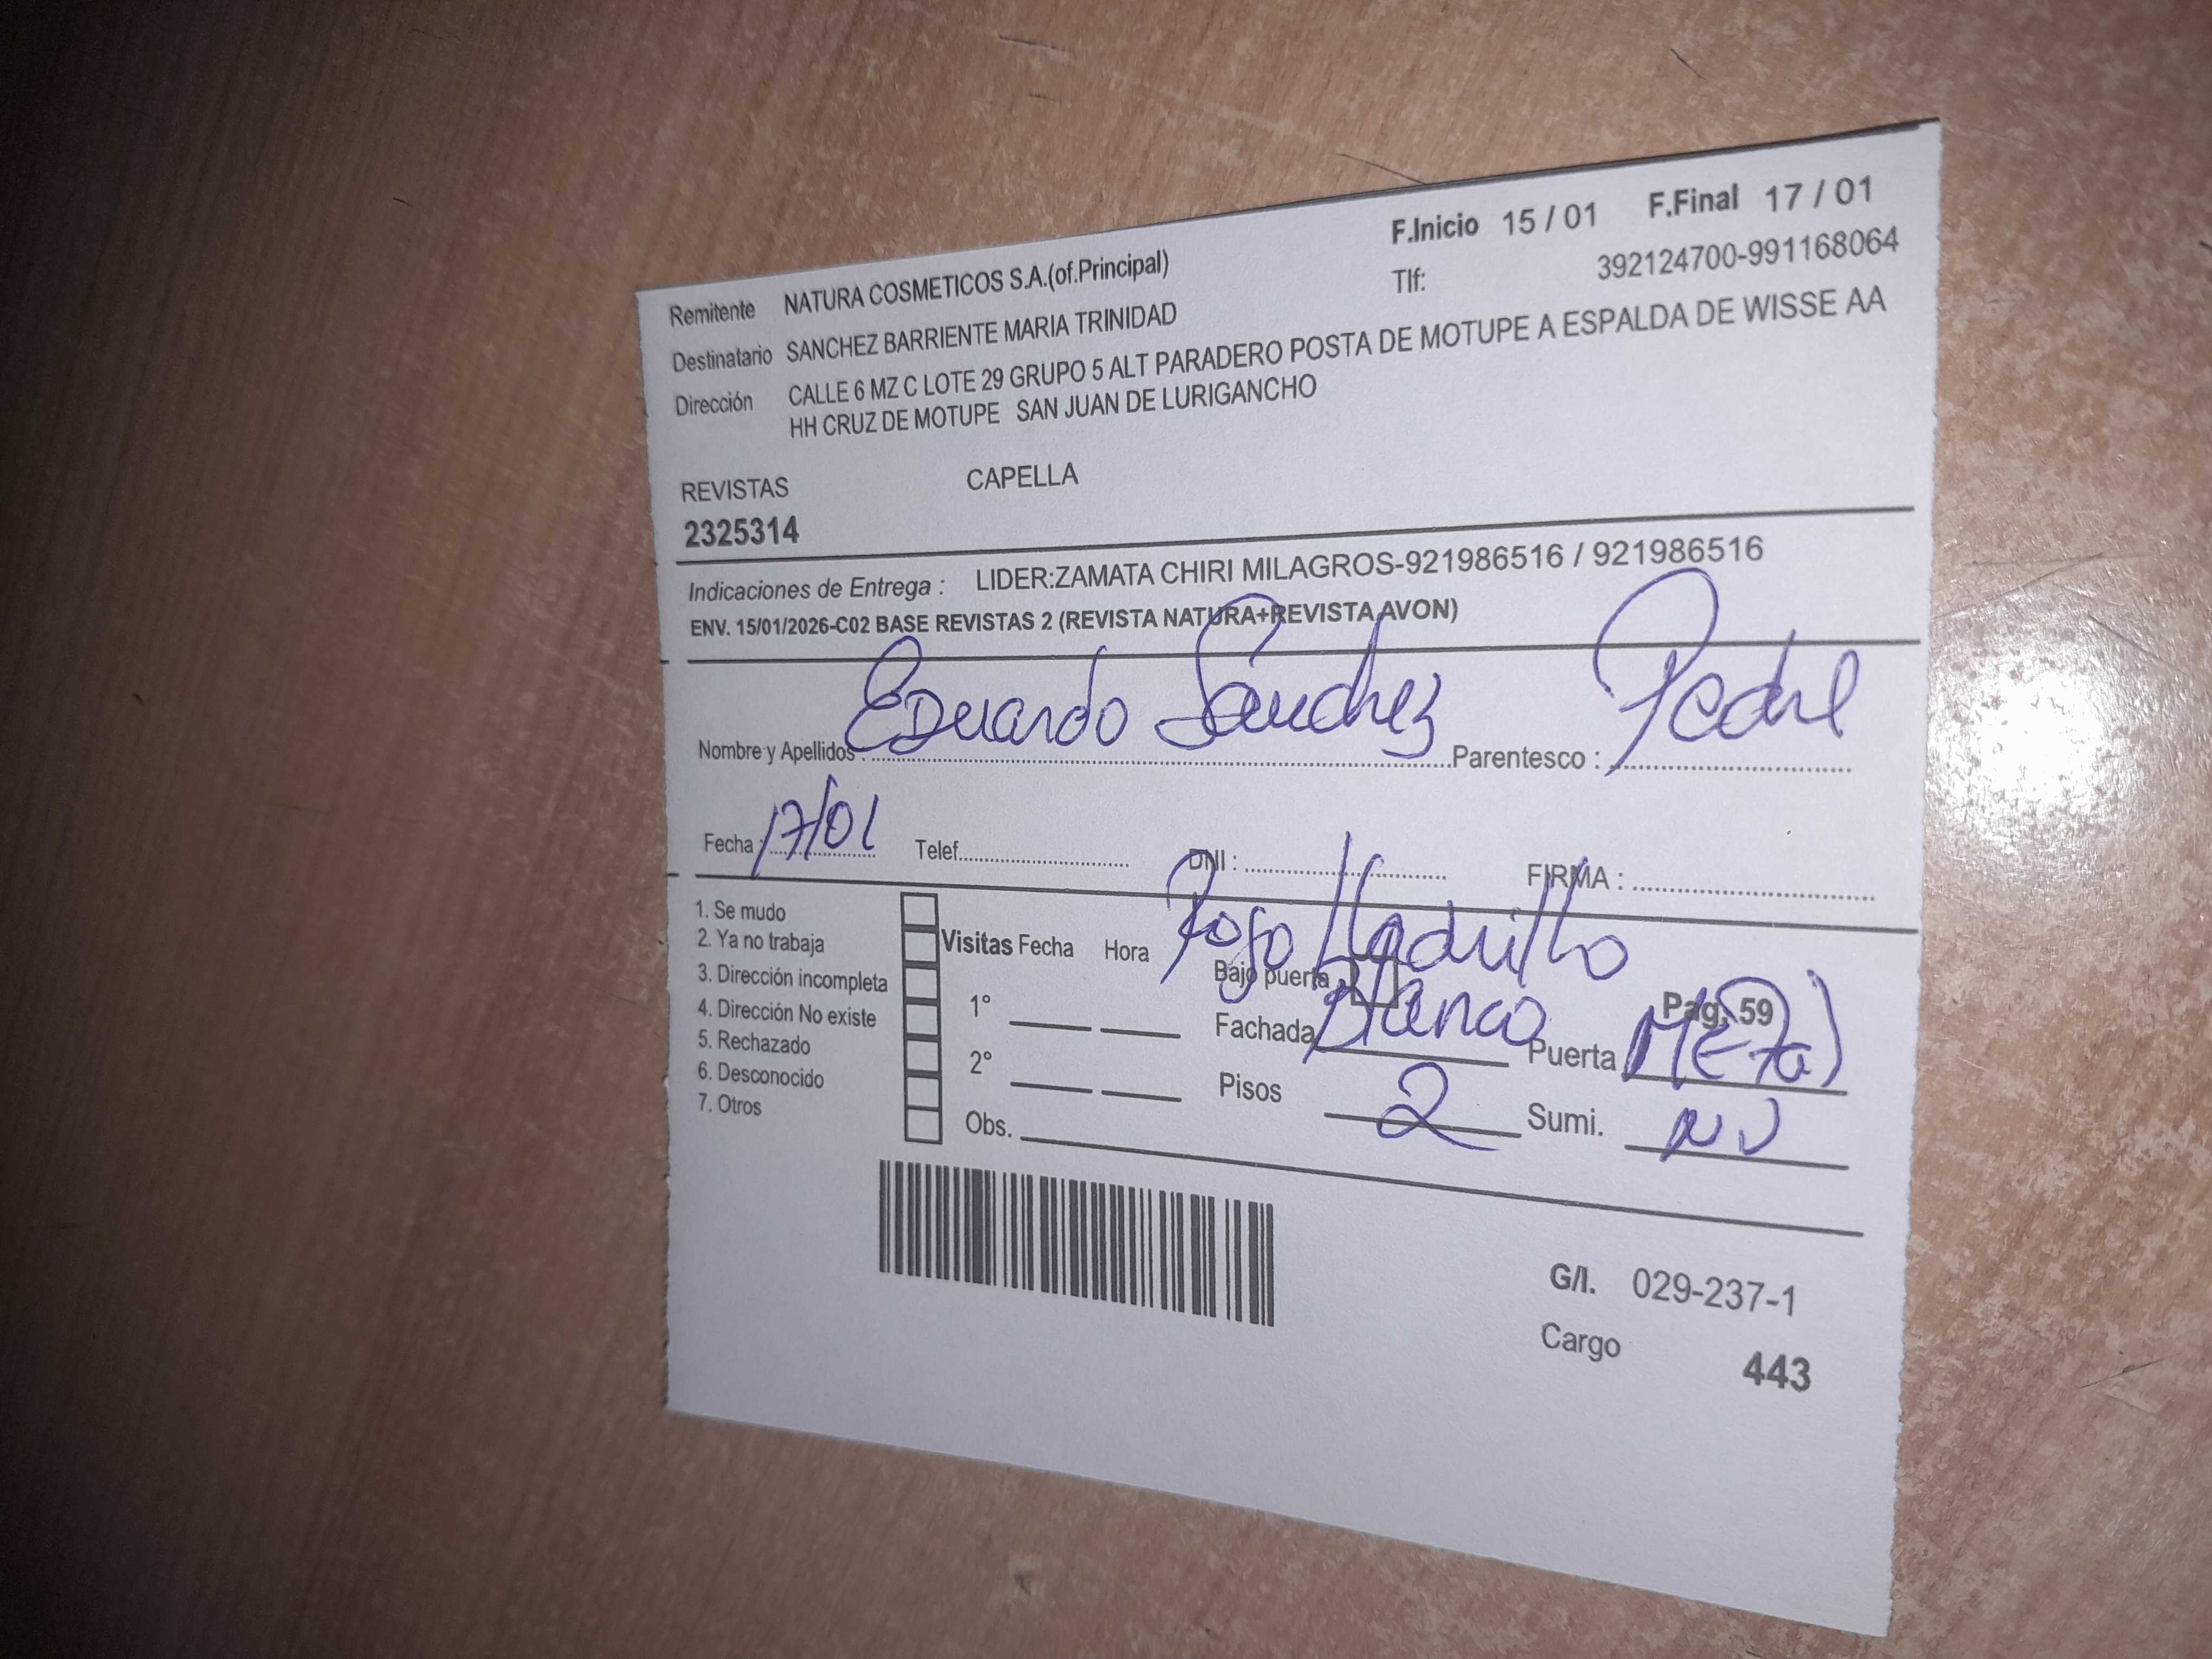 F.Inicio 15 / 01 F.Final 17 / 01
Remitente NATURA COSMETICOS S.A.(of.Principal) Tlf: 392124700-991168064
Destinatario SANCHEZ BARRIENTE MARIA TRINIDAD
Dirección CALLE 6 MZ C LOTE 29 GRUPO 5 ALT PARADERO POSTA DE MOTUPE A ESPALDA DE WISSE AA
HH CRUZ DE MOTUPE SAN JUAN DE LURIGANCHO
REVISTAS CAPELLA
2325314
Indicaciones de Entrega : LIDER:ZAMATA CHIRI MILAGROS-921986516 / 921986516
ENV. 15/01/2026-C02 BASE REVISTAS 2 (REVISTA NATURA+REVISTA AVON)
Nombre y Apellidos : Eduardo Sanchez Parentesco : Padre
Fecha : 17/01 Telef. DNI : FIRMA :
1. Se mudo
2. Ya no trabaja Visitas Fecha Hora Rojo Ladrillo
3. Dirección incompleta Bajo puerta
4. Dirección No existe 1° Fachada Blanco Pag. 59
5. Rechazado Puerta Metal
6. Desconocido 2° Pisos 2 Sumi.
7. Otros Obs.
G/I. 029-237-1
Cargo 443